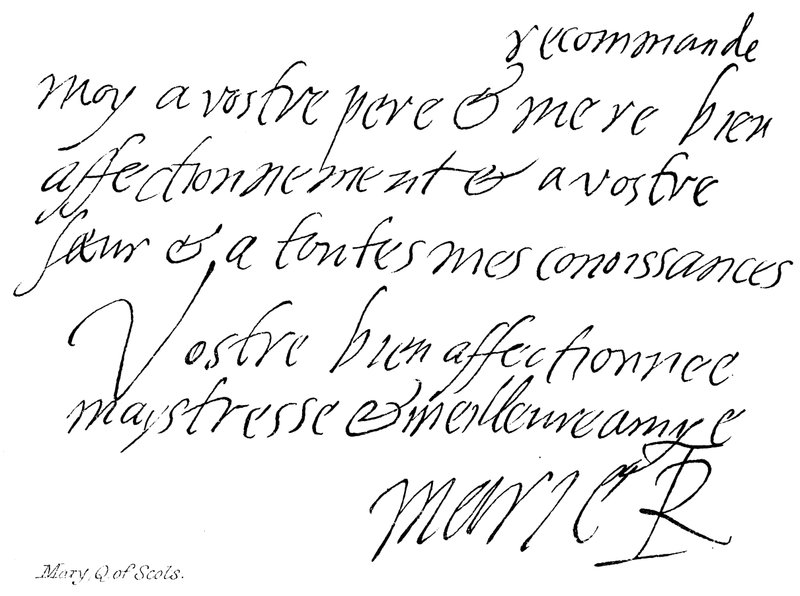 recommande
moy a vostre pere & mere bien
affectionnement & a vostre
sœur & a toutes mes conoissances
Vostre bien affectionnee
maystresse & meilleure amye
Marie R
Mary, Q of Scots.